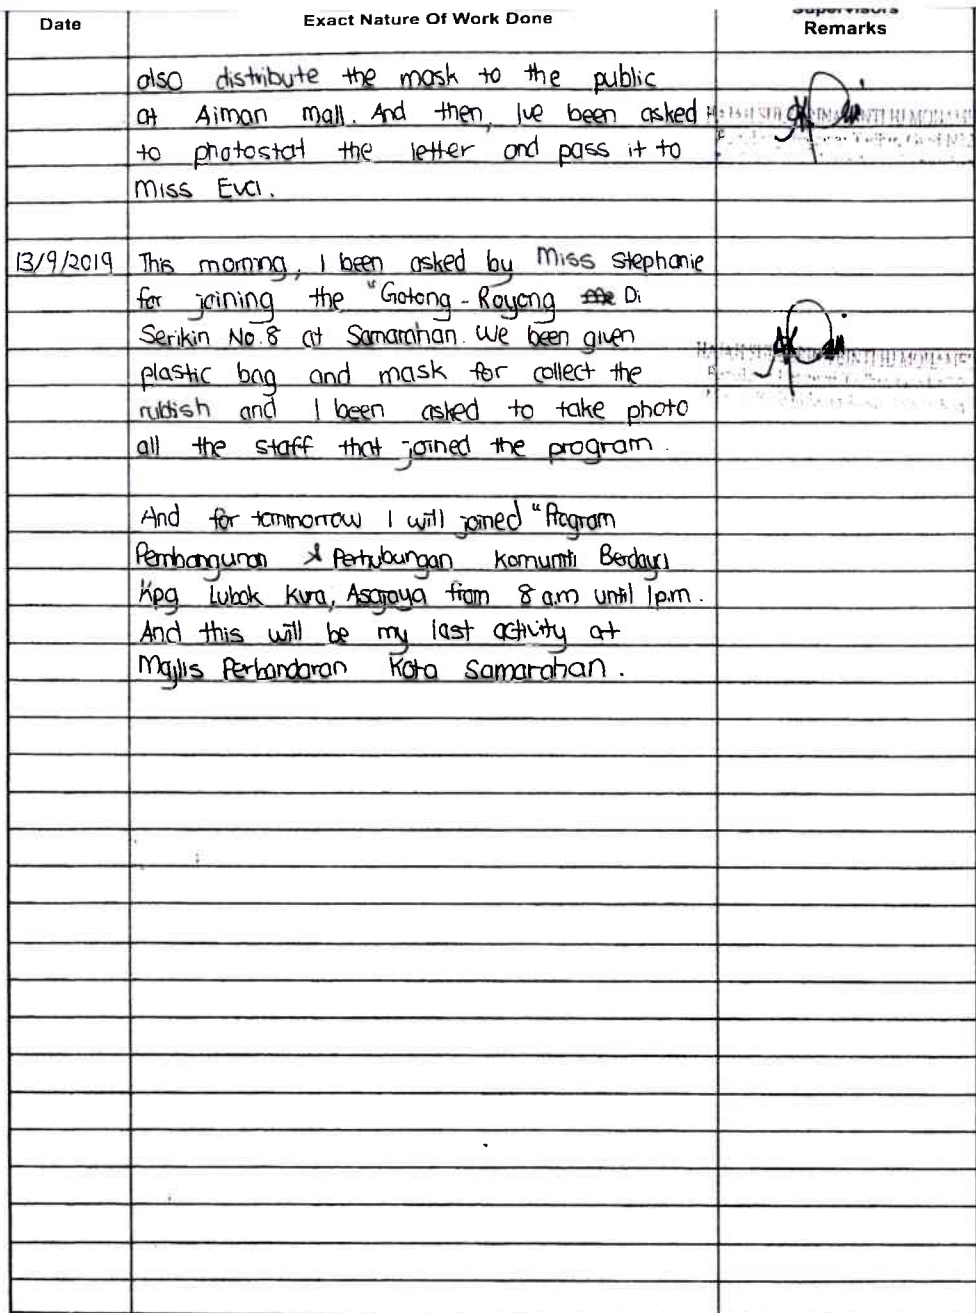 Date
Exact Nature Of Work Done
Supervisors
Remarks
also distribute the mask to the public
at Aiman mall. And then, Ive been asked
to photostat the letter and pass it to
Miss Eva.
13/9/2019
This morning, I been asked by Miss Stephanie
for joining the "Gotong - Royong Di
Serikin No.8 at Samarahan. We been given
plastic bag and mask for collect the
rubbish and I been asked to take photo
all the staff that joined the program.
And for tommorrow I will joined "Program
Pembangunan & Perhubungan Komuniti Berdaya
Kpg Lubok Kura, Asajaya from 8 a.m until 1p.m.
And this will be my last activity at
Majlis Perbandaran Kota Samarahan.